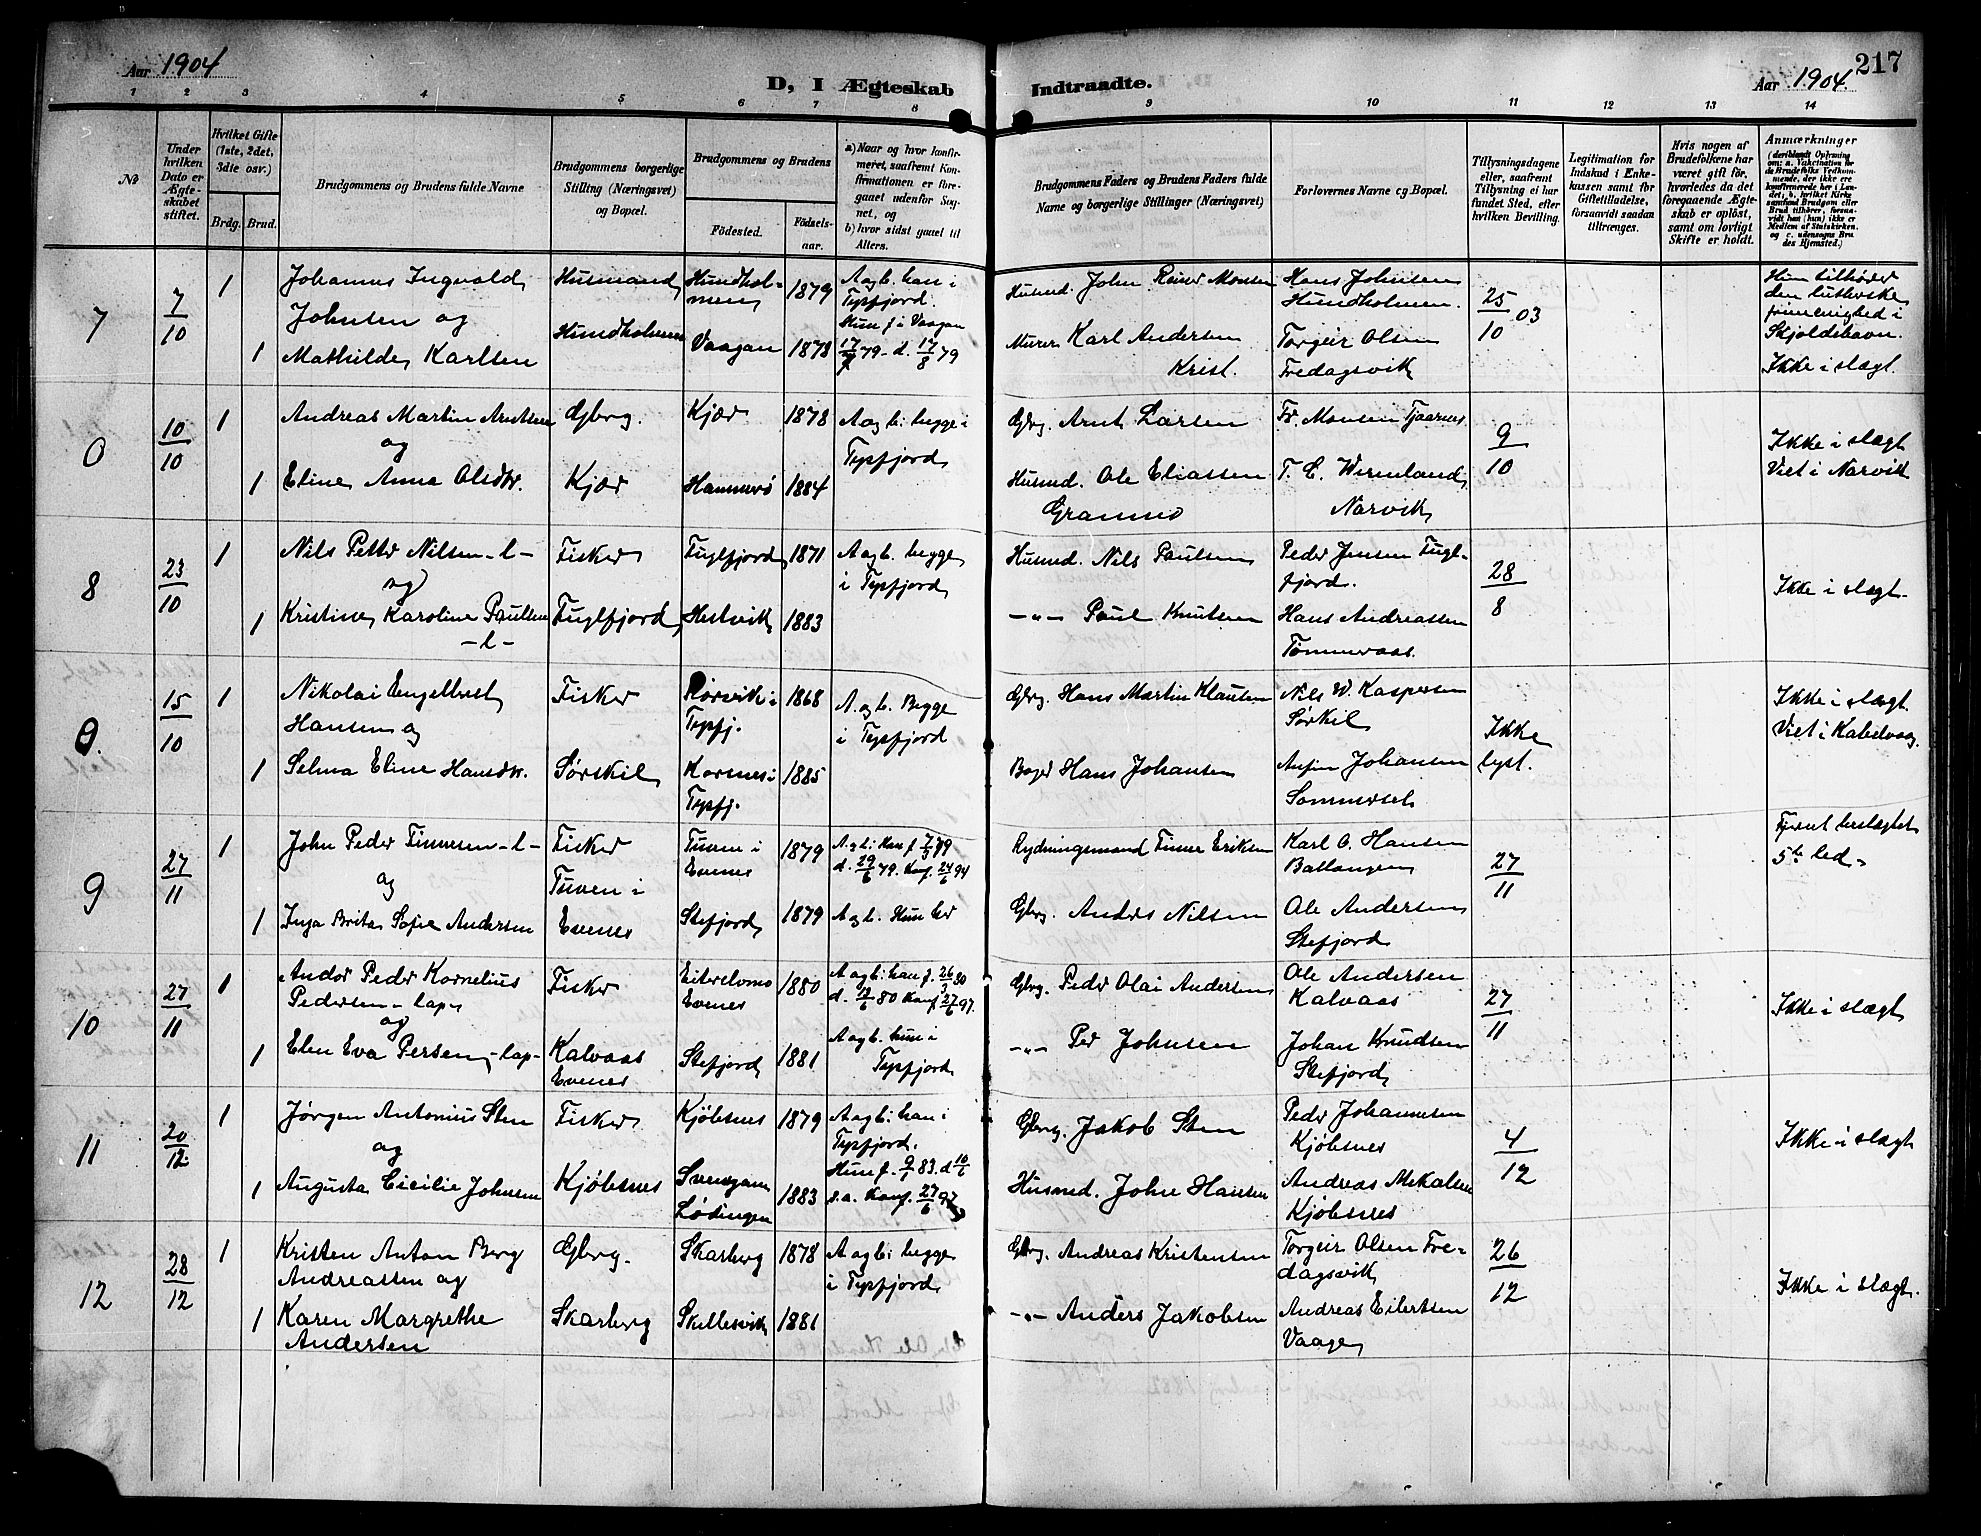 217
Aar 1904
D, I Ægteskab Indtraadte.
Aar 1904.
1 2 3 4 5 6 7 8 9 10 11 12 13 14
No
Under hvilken Dato er Ægteskabet stiftet.
Hvilket Gifte (1ste, 2det, 3die osv.)
Brdg. Brud.
Brudgommens og Brudens fulde Navne
Brudgommens borgerlige Stilling (Næringsvei) og Bopæl.
Brudgommens og Brudens
Fødested.
Fødselsaar.
a) Naar og hvor konfirmeret, saafremt Konfirmationen er foregaaet udenfor Sognet, og
b) hvor sidst gaaet til Alters.
Brudgommens Faders og Brudens Faders fulde Navne og borgerlige Stillinger (Næringsvei)
Forlovernes Navne og Bopæl.
Tillysningsdagene eller, saafremt Tillysning ei har fundet Sted, efter hvilken Bevilling.
Legitimation for Indskud i Enkekassen samt for Giftetilladelse, forsaavidt saadan tiltrænges.
Hvis nogen af Brudefolkene har været gift før, hvorledes da det foregaaende Ægteskab er opløst, samt om lovligt Skifte er holdt.
Anmærkninger
7
7/10
1
Johannes Ingvald
Johnsen og
1
Mathilde Karlsen
Husmand
Hundholmen
Hundholmen
Vaagan
1879
1878
A og b. han i
Tysfjord.
Hun f. i Vaagan
17/7 79 - d. 17/8 79
Husmd. John Reier Monsen
Murer Karl Andersen
Krist.
Hans Johnsen
Hundholmen.
Torgeir Olsen
Fredagsvik
25/10 03
Hun tilhører
den lutherske
frimenighed i
Skjoldehavn.
Ikke i slægt.
0
10/10
1
Andreas Martin Arntsen
og
1
Eline Anna Olsdtr.
Gbrg.
Kjær
Kjær
Hammerø
1878
1884
A og b: begge i
Tysfjord
Gbrg. Arnt Larsen
Husmd. Ole Eliassen
Granmo
Fr. Monsen Tjaarnes
T. C. Wirmland
Narvik
9/10
Ikke i slægt
Viet i Narvik
8
23/10
1
Nils Petter Nilsen - l -
og
1
Kristine Karoline Paulsen
- l -
Fisker
Fuglfjord
Fuglfjord
Hestvik
1871
1883
A og b. begge
i Tysfjord
Husmd. Nils Paulsen
-"- Paul Knutsen
Peder Jensen Fugl-
fjord.
Hans Andreassen
Tømmeraas.
28/8
Ikke i slægt.
0.
15/10
1
Nikolai Engelbret
Hansen og
1
Selma Eline Hansdtr.
Fisker
Sørskil
Korsnes i
Tysfj.
1868
1885
A. og b. Begge
i Tysfjord
Gbrg. Hans Martin Klausen
Bager Hans Johansen
Nils W. Kaspersen
Sørkil
Johansen
Sommerset
Ikke
lyst.
Ikke i slægt.
Viet i Kabelvaag.
9
27/11
1
John Peder Finnesen - l -
og
1
Inga Brita Sofie Andersen
Fisker
Tuven i
Evenes
Tuven i
Evenes
Stefjord
1879
1879
A. og b: Han f. 7/3 79
d. 29/6 79. Konf. 24/6 94
A og b. Hun her
Rydningsmand Finne Eriksen
Gbrg. Anders Nilsen
Karl O. Hansen
Ballangen
Ole Andersen
Stefjord
27/11
Fjernt beslægtet
5te led.
10
27/11
1
Andor Peder Kornelius
Pedersen - lap
og
1
Elen Eva Persen - lap -
Fisker
Kalvaas
Evenes
Evenes
Stefjord
1880
1881
A og b: han f. 26/3 80
80 Konf. 27/6 97.
A og b. hun i
Tysfjord
Gbrg. Peder Olai Andersen
-"- Ped Johnsen
Ole Andersen
Kalvaas
Johan Knudsen
Stefjord
27/11
Ikke i slægt
11
20/12
1
Jørgen Antonius Sten
og
1
Augusta Cicilie Johnsen
Fisker
Kjøbsnes
Kjøbsnes
Lødingen
1879
1883
A og b: han i
Tysfjord.
Hun f. 9/1 83. d 10/6
s.a. Konf. 27/6 97
Gbrg. Jakob Sten
Husmd. John Hansen
Peder Johannesen
Kjøbsnes
Andreas Mikalsen
Kjøbsnes
4/12
Ikke i slægt
12
28/12
1
Kristen Anton Berg
Andreassen og
1
Karen Margrethe
Andersen
Gbrg.
Skarberg
Skarberg
Skellesvik
1878
1881
A og b: begge
i Tysfjord
Gbrg. Andreas Kristensen
-"- Anders Jakobsen
Torgeir Olsen Fre-
dagsvik
Andreas Eilertsen
Vaage
26/12
Ikke i slægt.